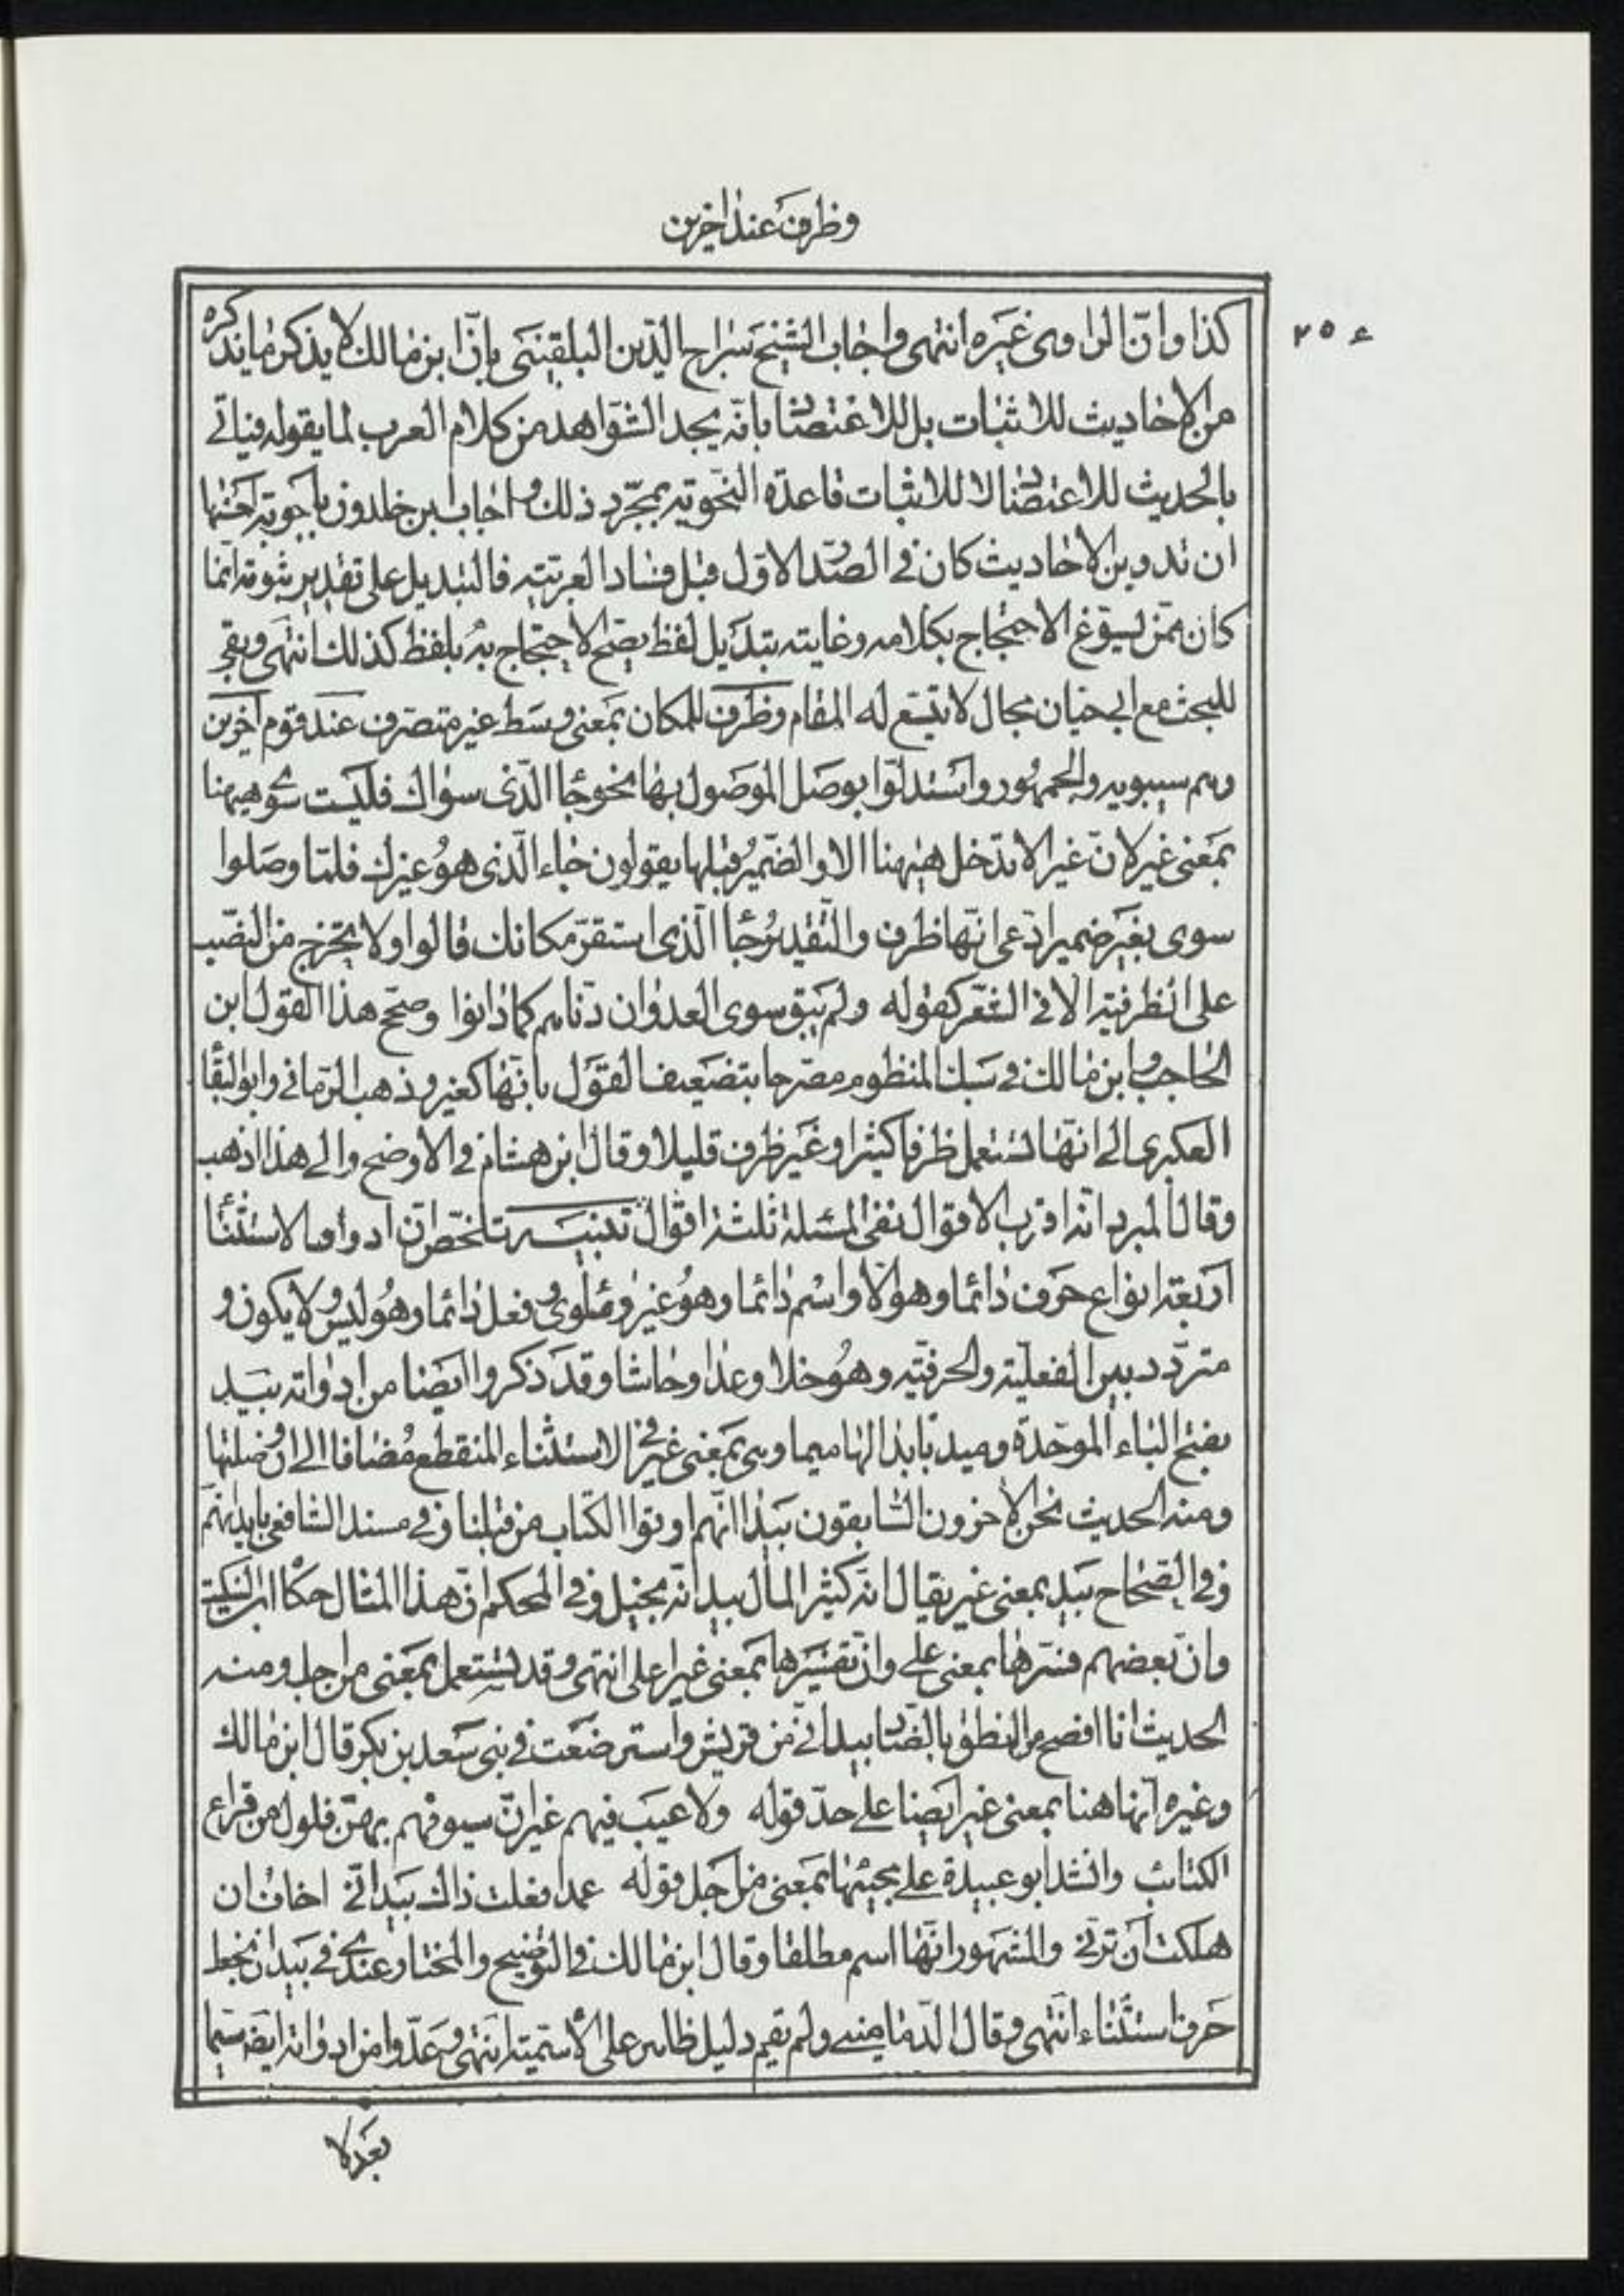 وظرف عند اخرين
٢٥٤
كذا وانّ الراوى غيره انتهى واجاب الشيخ سراج الدّين البلقينى بانّ ابن مالك لا يذكر ما يذكره
من الاحاديث للاثبات بل للاعتضا بانّه يجد الشواهد من كلام العرب لما يقوله فياتى
بالحديث للاعتضا لا للاثبات قاعدة النّحويّة بمجرّد ذلك واجاب ابن خلدون باجوبة احسنها
ان تدوين الاحاديث كان فى الصّد الاوّل قبل فساد العربيّة فالتبديل على تقدير ثبوته انّما
كان ممّن يسوّغ الاحتجاج بكلامه وغايته تبديل لفظ يصحّ الاحتجاج به بلفظ كذلك انتهى وبقى
للبحث مع ابى حيان مجال لا يتّسع له المقام وظرف للمكان بمعنى وسط غير متصرف عند قوم آخرين
وهم سيبويه والجمهور واستدلّوا بوصل الموصول بها نحو جا الّذى سواك فليست سوى هيهنا
بمعنى غير لانّ غير لا تدخل هيهنا الا والضّمير قبلها يقولون جاء الّذى هو غيرك فلمّا وصلوا
سوى بغير ضمير ادّعى انّها ظرف والتّقدير جا الّذى استقرّ مكانك قالوا ولا يخرج من النّصب
على الظرفيّة الا فى الشّعر كقوله ولم يبق سوى العدوان دنّاهم كما دانوا وصحّح هذا القول ابن
الحاجب وابن مالك فى سبك المنظوم مصرحا بتضعيف القول بانّها كغير وذهب الرّمانى وابو البقا
العكبرى الى انّها تستعمل ظرفا كثيرا وغير ظرف قليلا وقال ابن هشام فى الاوضح والى هذا اذهب
وقال المبرد انّه اقرب الاقوال نفى المسئلة ثلثة اقوال تنبيـــه تلخّص انّ ادوات الاستثنا
اربعة انواع حرف دائما وهو الّا واسم دائما وهو غير وسوى وفعل دائما وهو ليس ولا يكون و
متردّد بين الفعليّة والحرفيّة وهو خلا وعدا وحاشا وقد ذكروا ايضا من ادواته بيد
بفتح الباء الموحّدة وميد بابدالها ميما وهى بمعنى غير فى الاستثناء المنقطع مضافا الى ان وصلتها
ومنه الحديث نحن الاخرون السّابقون بيد انّهم اوتوا الكتاب من قبلنا وفى مسند الشافعى بايد انّهم
وفى الصّحاح بيد بمعنى غير يقال انّه كثير المال بيد انّه بخيل وفى المحكم انّ هذا المثال حكا ابن السّكيت
وانّ بعضهم فسّرها بمعنى على وانّ تفسيرها بمعنى غير اعلى انتهى وقد تستعمل بمعنى من اجل ومنه
الحديث انا افصح من نطق بالضّا بيد انّى من قريش واسترضعت فى بنى سعد بن بكر قال ابن مالك
وغيره انّها هنا بمعنى غير ايضا على حدّ قوله ولا عيب فيهم غير انّ سيوفهم بهنّ فلول من قراع
الكتائب وانشد ابو عبيدة على مجيئها بمعنى من اجل قوله عمدا فعلت ذاك بيد انّى اخاف ان
هلكت ان ترنى والمشهور انّها اسم مطلقا وقال ابن مالك فى التوضيح والمختار عندى فى بيد ان تجعل
حرف استثناء انتهى وقال الدّمامينى ولم يقم دليل ظاهر على الاسميّة انتهى وعدّوا من ادواته ايضا سيّما
بعد لا